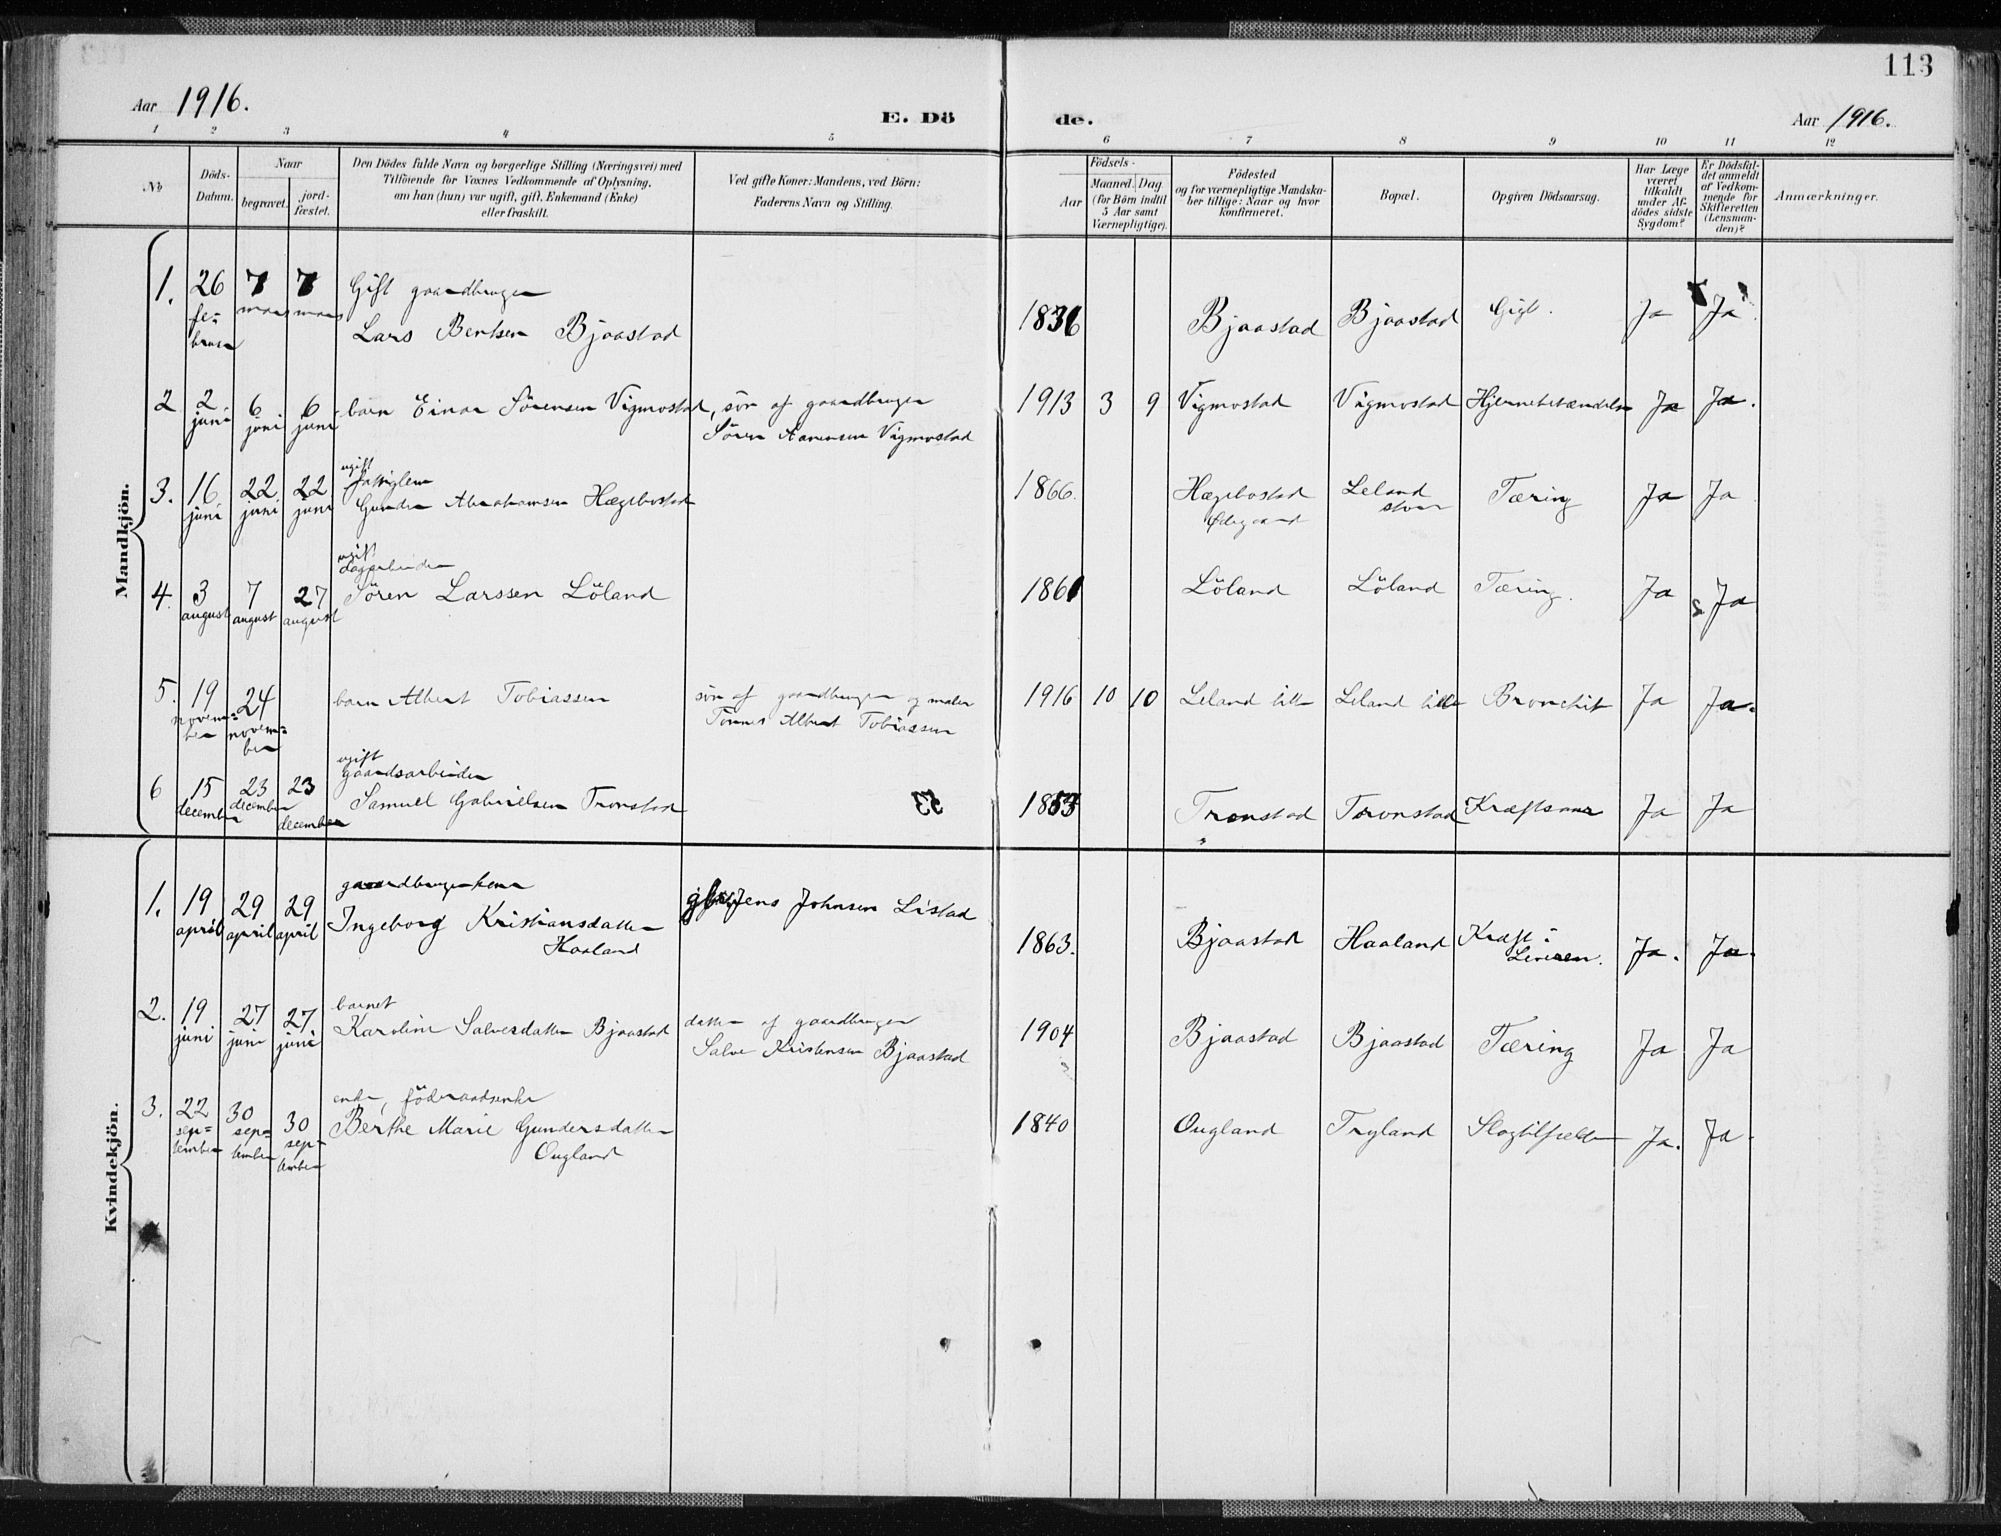 113
Aar 1916.
E. Dö
de.
Aar 1916.
1 2 3 4 5 6 7 8 9 10 11 12
No
Döds-Datum.
Naar
begravet.
jord-fæstet.
Den Dödes fulde Navn og borgerlige Stilling (Næringsvei) med
Tilföiende for Voxnes Vedkommende af Oplysning,
om han (hun) var ugift, gift, Enkemand (Enke)
eller fraskilt.
Ved gifte Koner: Mandens, ved Börn:
Faderens Navn og Stilling.
Födsels-
Aar
Maaned. Dag.
(for Börn indtil
5 Aar samt
Værnepligtige).
Födested
og for værnepligtige Mandska-
ber tillige: Naar og hvor
konfirmeret.
Bopæl.
Opgiven Dödsaarsag.
Har Læge
været
tilkaldt
under Af-
dödes sidste
Sygdom?
Er Dödsfal-
det anmeldt
af Vedkom-
mende for
Skifteretten
(Lensman-
den)?
Anmærkninger.
Mandkjön.
1. 26 februar 7 mars 7 mars Gift gaardbruger
Lars Berntsen Bjaastad 1836 Bjaastad Bjaastad Gigt. Ja Ja.
2 2 juni 6 juni 6 juni barn Einar Sörensen Vigmostad, sön af gaardbruger
Sören Aanensen Vigmostad 1913 3 9 Vigmostad Vigmostad Hjernebetændelse Ja Ja.
3. 16 juni 22 juni 22 juni ugift
Gunder Abrahamsen Hægebostad 1866. Hægebostad
Ødegaard Leland
stor Tæring Ja Ja
4. 3 august 7 august 27 august ugift
dagarbeider
Sören Larssen Löland 1861 Löland Löland Tæring. Ja Ja
5. 19 november 24 november barn Albert Tobiassen sön af gaardbruger og maler
Tönnes Albert Tobiassen 1916 10 10 Leland lille Leland lille Bronchit Ja Ja.
6 15 december 23 december 23 december ugift
Gaardsarbeider
Samuel Gabrielsen Tronstad 1853 Tronstad Tronstad Kræftsaar Ja Ja
Kvindekjön.
1. 19 april 29 april 29 april gaardbrugerkone
Ingeborg Kristiansdatter
Haaland gbr. Jens Johnsen Listad 1863. Bjaastad Haaland Kræft i
Leveren. Ja. Ja.
2. 19 juni 27 juni 27 juni barnet
Karoline Salvesdatter Bjaastad datter af gaardbruger
Salve Kristensen Bjaastad 1904 Bjaastad Bjaastad Tæring Ja Ja
3. 22 september 30 september 30 september enke, föderaadsenke
Berthe Marie Gundersdatter
Ougland 1840 Ougland Tryland Slagtilfælde Ja. Ja.